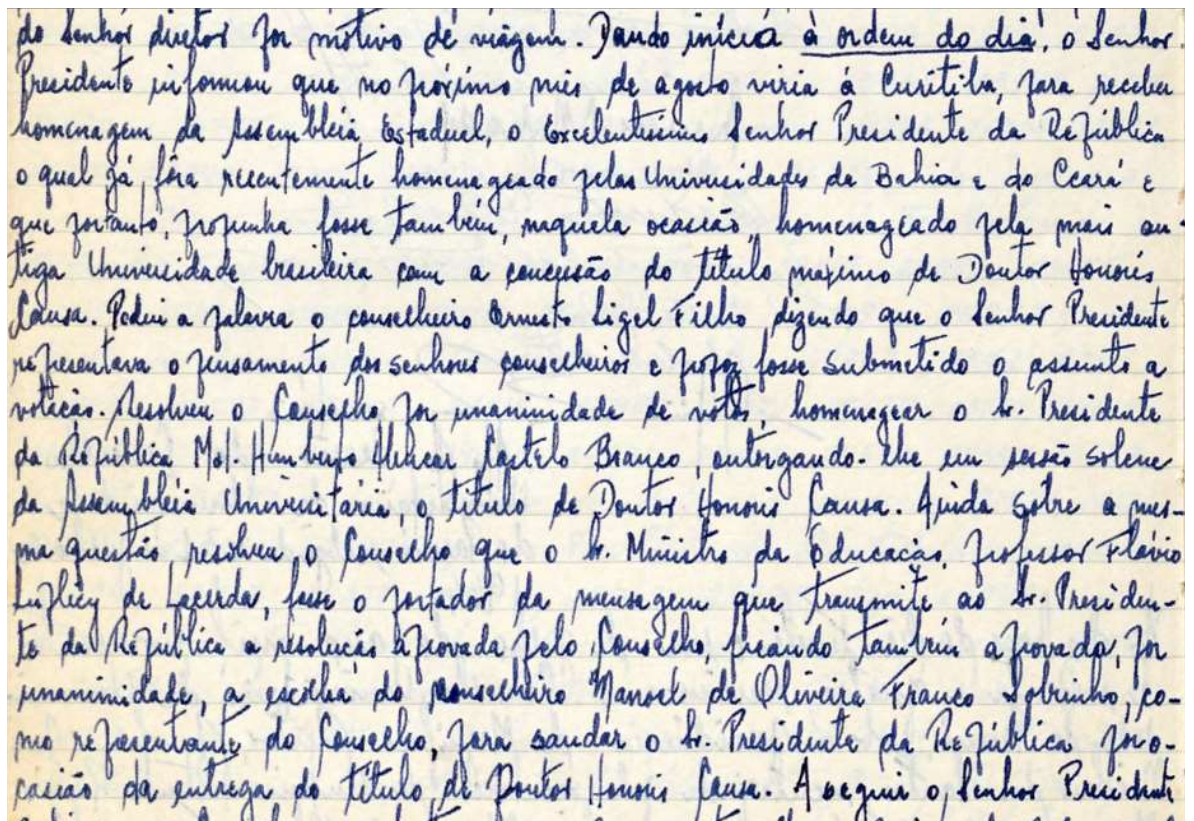 do Senhor diretor por motivo de viagem. Dando início à ordem do dia, o Senhor
Presidente informou que no próximo mês de agosto viria á Curitiba, para receber
homenagem da Assembléia Estadual, o Excelentíssimo Senhor Presidente da República
o qual já, fôra recentemente homenageado pelas Universidades da Bahia e do Ceará e
que portanto, propunha fosse também, naquela ocasião, homenageado pela mais an-
tiga Universidade brasileira com a concessão do título máximo de Doutor Honoris
Causa. Pediu a palavra o conselheiro Ernesto Sigel Filho, dizendo que o Senhor Presidente
representava o pensamento dos senhores conselheiros e propoz fosse submetido o assunto a
votação. Resolveu o Conselho por unanimidade de votos, homenagear o Sr. Presidente
da República Mal. Humberto Alencar Castelo Branco, outorgando-lhe em sessão solene
da Assembléia Universitária, o título de Doutor Honoris Causa. Ainda sobre a mes-
ma questão, resolveu o Conselho que o Sr. Ministro da Educação, professor Flávio
Suplicy de Lacerda, fosse o portador da mensagem que transmite ao Sr. Presiden-
te da República a resolução aprovada pelo Conselho, ficando também aprovada, por
unanimidade, a escolha do conselheiro Manoel de Oliveira Franco Sobrinho, co-
mo representante do Conselho, para saudar o Sr. Presidente da República por o-
casião da entrega do título de Doutor Honoris Causa. A seguir o, Senhor Presidente